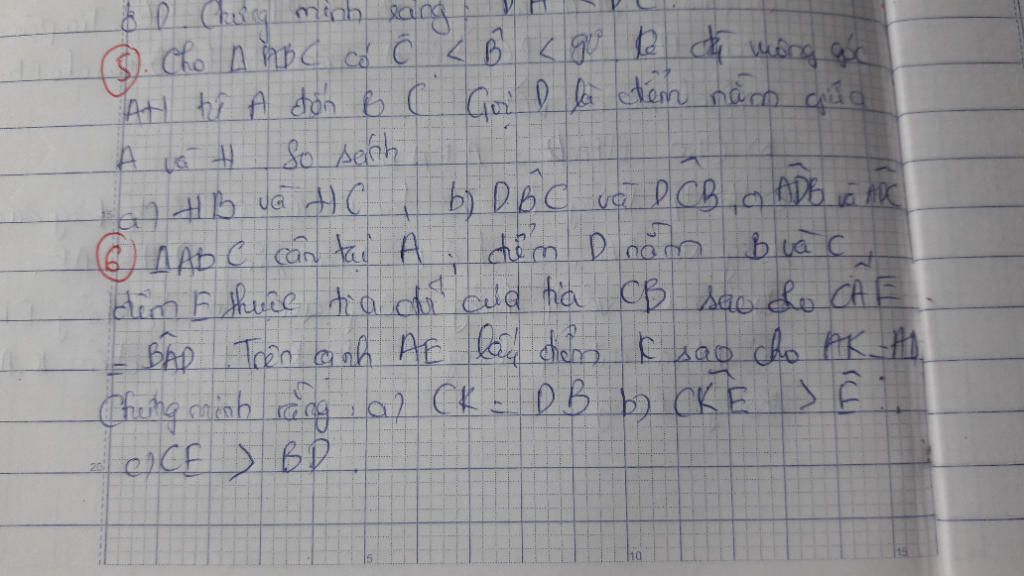 & D. Chứng minh rằng: DA < DC.
5. Cho Δ ABC có Ĉ < B̂ < 90° kẻ đg vuông góc
AH từ A đến B C Gọi D là điểm nằm giữa
A và H So sánh
a) HB và HC, b) DB̂C và DĈB, c) AD̂B và AD̂C
6 ΔABC cân tại A; điểm D nằm B và C,
điểm E thuộc tia đối của tia CB sao cho CÂE
= BÂD. Trên cạnh AE lấy điểm K sao cho AK = AD.
Chứng minh rằng: a) CK = DB b) CK̂E > Ê.
c) CE > BD.
20 5 10 15